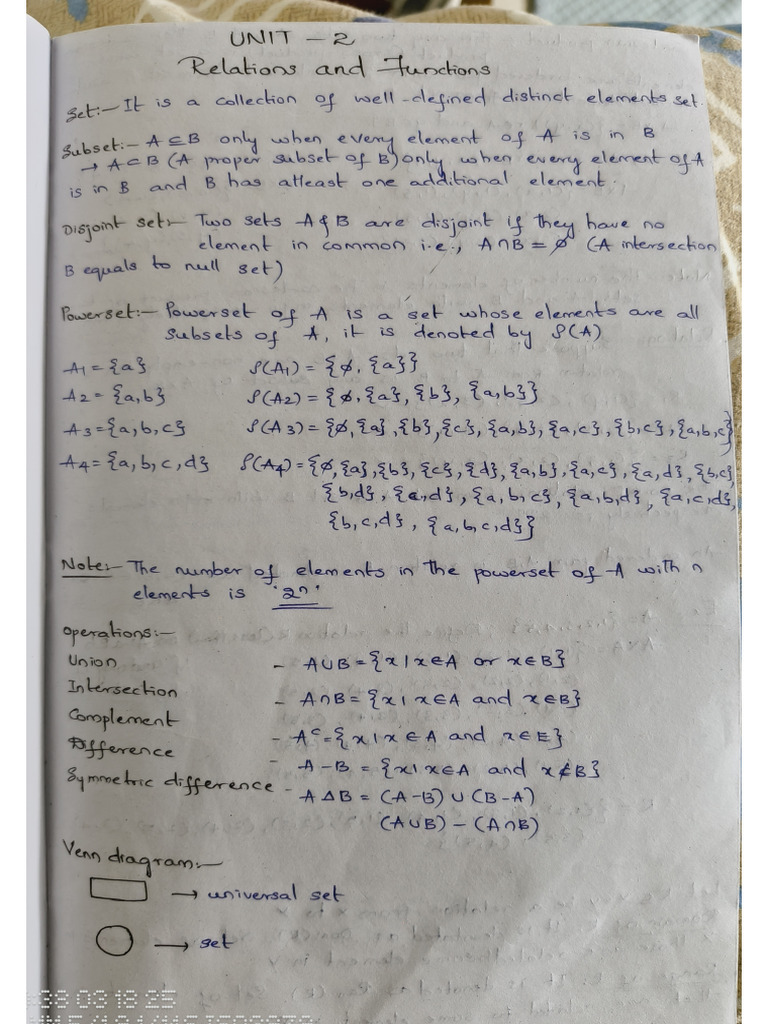 UNIT - 2
Relations and Functions
Set:- It is a collection of well-defined distinct elements set.
Subset:- A ⊆ B only when every element of A is in B
→ A ⊂ B (A proper subset of B) only when every element of A
is in B and B has atleast one additional element.
Disjoint set:- Two sets A & B are disjoint if they have no
element in common i.e., A ∩ B = ∅ (A intersection
B equals to null set)
Powerset:- Powerset of A is a set whose elements are all
subsets of A, it is denoted by P(A)
A1 = {a} P(A1) = {∅, {a}}
A2 = {a,b} P(A2) = {∅, {a}, {b}, {a,b}}
A3 = {a,b,c} P(A3) = {∅, {a}, {b}, {c}, {a,b}, {a,c}, {b,c}, {a,b,c}}
A4 = {a,b,c,d} P(A4) = {∅, {a}, {b}, {c}, {d}, {a,b}, {a,c}, {a,d}, {b,c},
{b,d}, {c,d}, {a,b,c}, {a,b,d}, {a,c,d},
{b,c,d}, {a,b,c,d}}
Note:- The number of elements in the powerset of A with n
elements is '2ⁿ'
Operations:-
Union - A∪B = {x | x ∈ A or x ∈ B}
Intersection - A∩B = {x | x ∈ A and x ∈ B}
Complement - Aᶜ = {x | x ∈ A and x ∈ E}
Difference - A-B = {x | x ∈ A and x ∉ B}
Symmetric difference - A△B = (A-B) ∪ (B-A)
(A∪B) - (A∩B)
Venn diagram:-
→ universal set
→ set
38 03 18 25